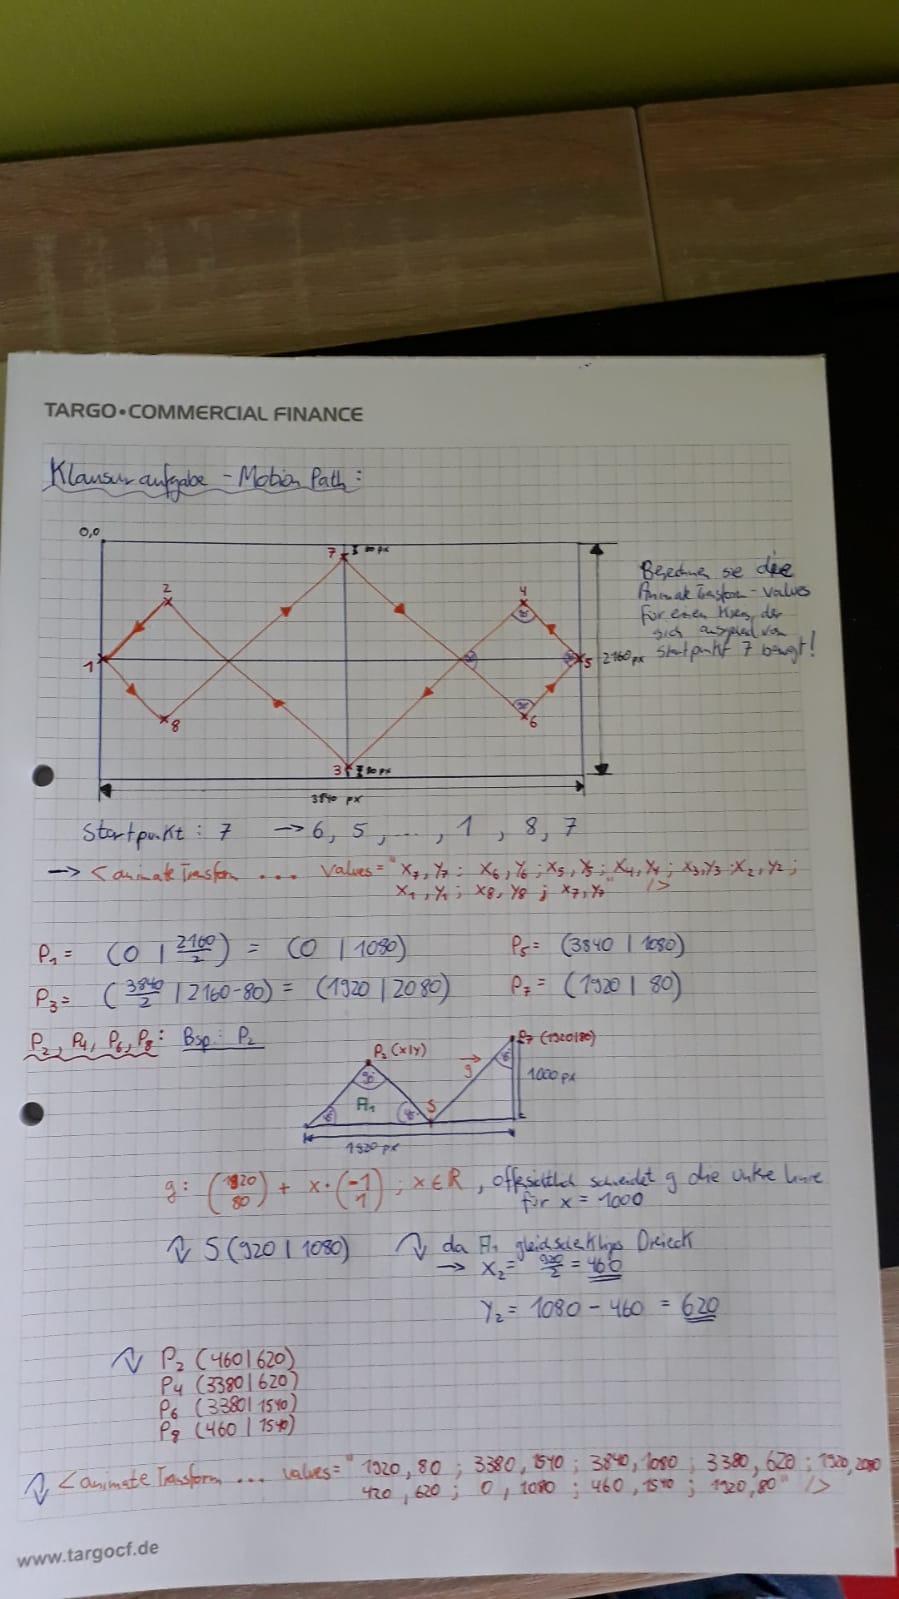 TARGO•COMMERCIAL FINANCE
Klausuraufgabe - Motion Path:
0,0
7
80 px
2
4
Berechnen sie die
AnimateTransform-values
für einen Kreis, der
sich ausgehend von
Startpunkt 7 bewegt!
1
5
2160 px
8
6
3
80 px
3840 px
Startpunkt: 7 → 6, 5, ..., 1, 8, 7
→ <animateTransform ... values="x7,y7; x6,y6; x5,y5; x4,y4; x3,y3; x2,y2;
x1,y1; x8,y8; x7,y7" />
P1 = (0 | 2160/2) = (0 | 1080) P5 = (3840 | 1080)
P3 = (3840/2 | 2160-80) = (1920 | 2080) P7 = (1920 | 80)
P2, P4, P6, P8: Bsp: P2
P2 (x|y)
P7 (1920|80)
g
90°
45°
1000 px
A1
S
1920 px
g: (1920 80) + x · (-1 1); x ∈ R, offensichtlich schneidet g die untere Linie
für x = 1000
S (920 | 1080) da A1 gleichschenkliges Dreieck
→ x2 = 920/2 = 460
y2 = 1080 - 460 = 620
P2 (460 | 620)
P4 (3380 | 620)
P6 (3380 | 1540)
P8 (460 | 1540)
<animateTransform ... values="1920,80; 3380,1540; 3840,1080; 3380,620; 1920,2080
420,620; 0,1080; 460,1540; 1920,80" />
www.targocf.de